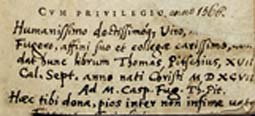 CVM PRIVILEGIO anno 1566.
Humanissimo doctissimoq́; Viro,
Fugero, affini suo et collegæ carissimo,
dat hunc librum Thomas Pitschius, XVII
Cal. Sept. anno nati Christi M D XCVII
Ad M. Casp. Fug. Th. Pit.
Hæc tibi dona, pios inter non infime